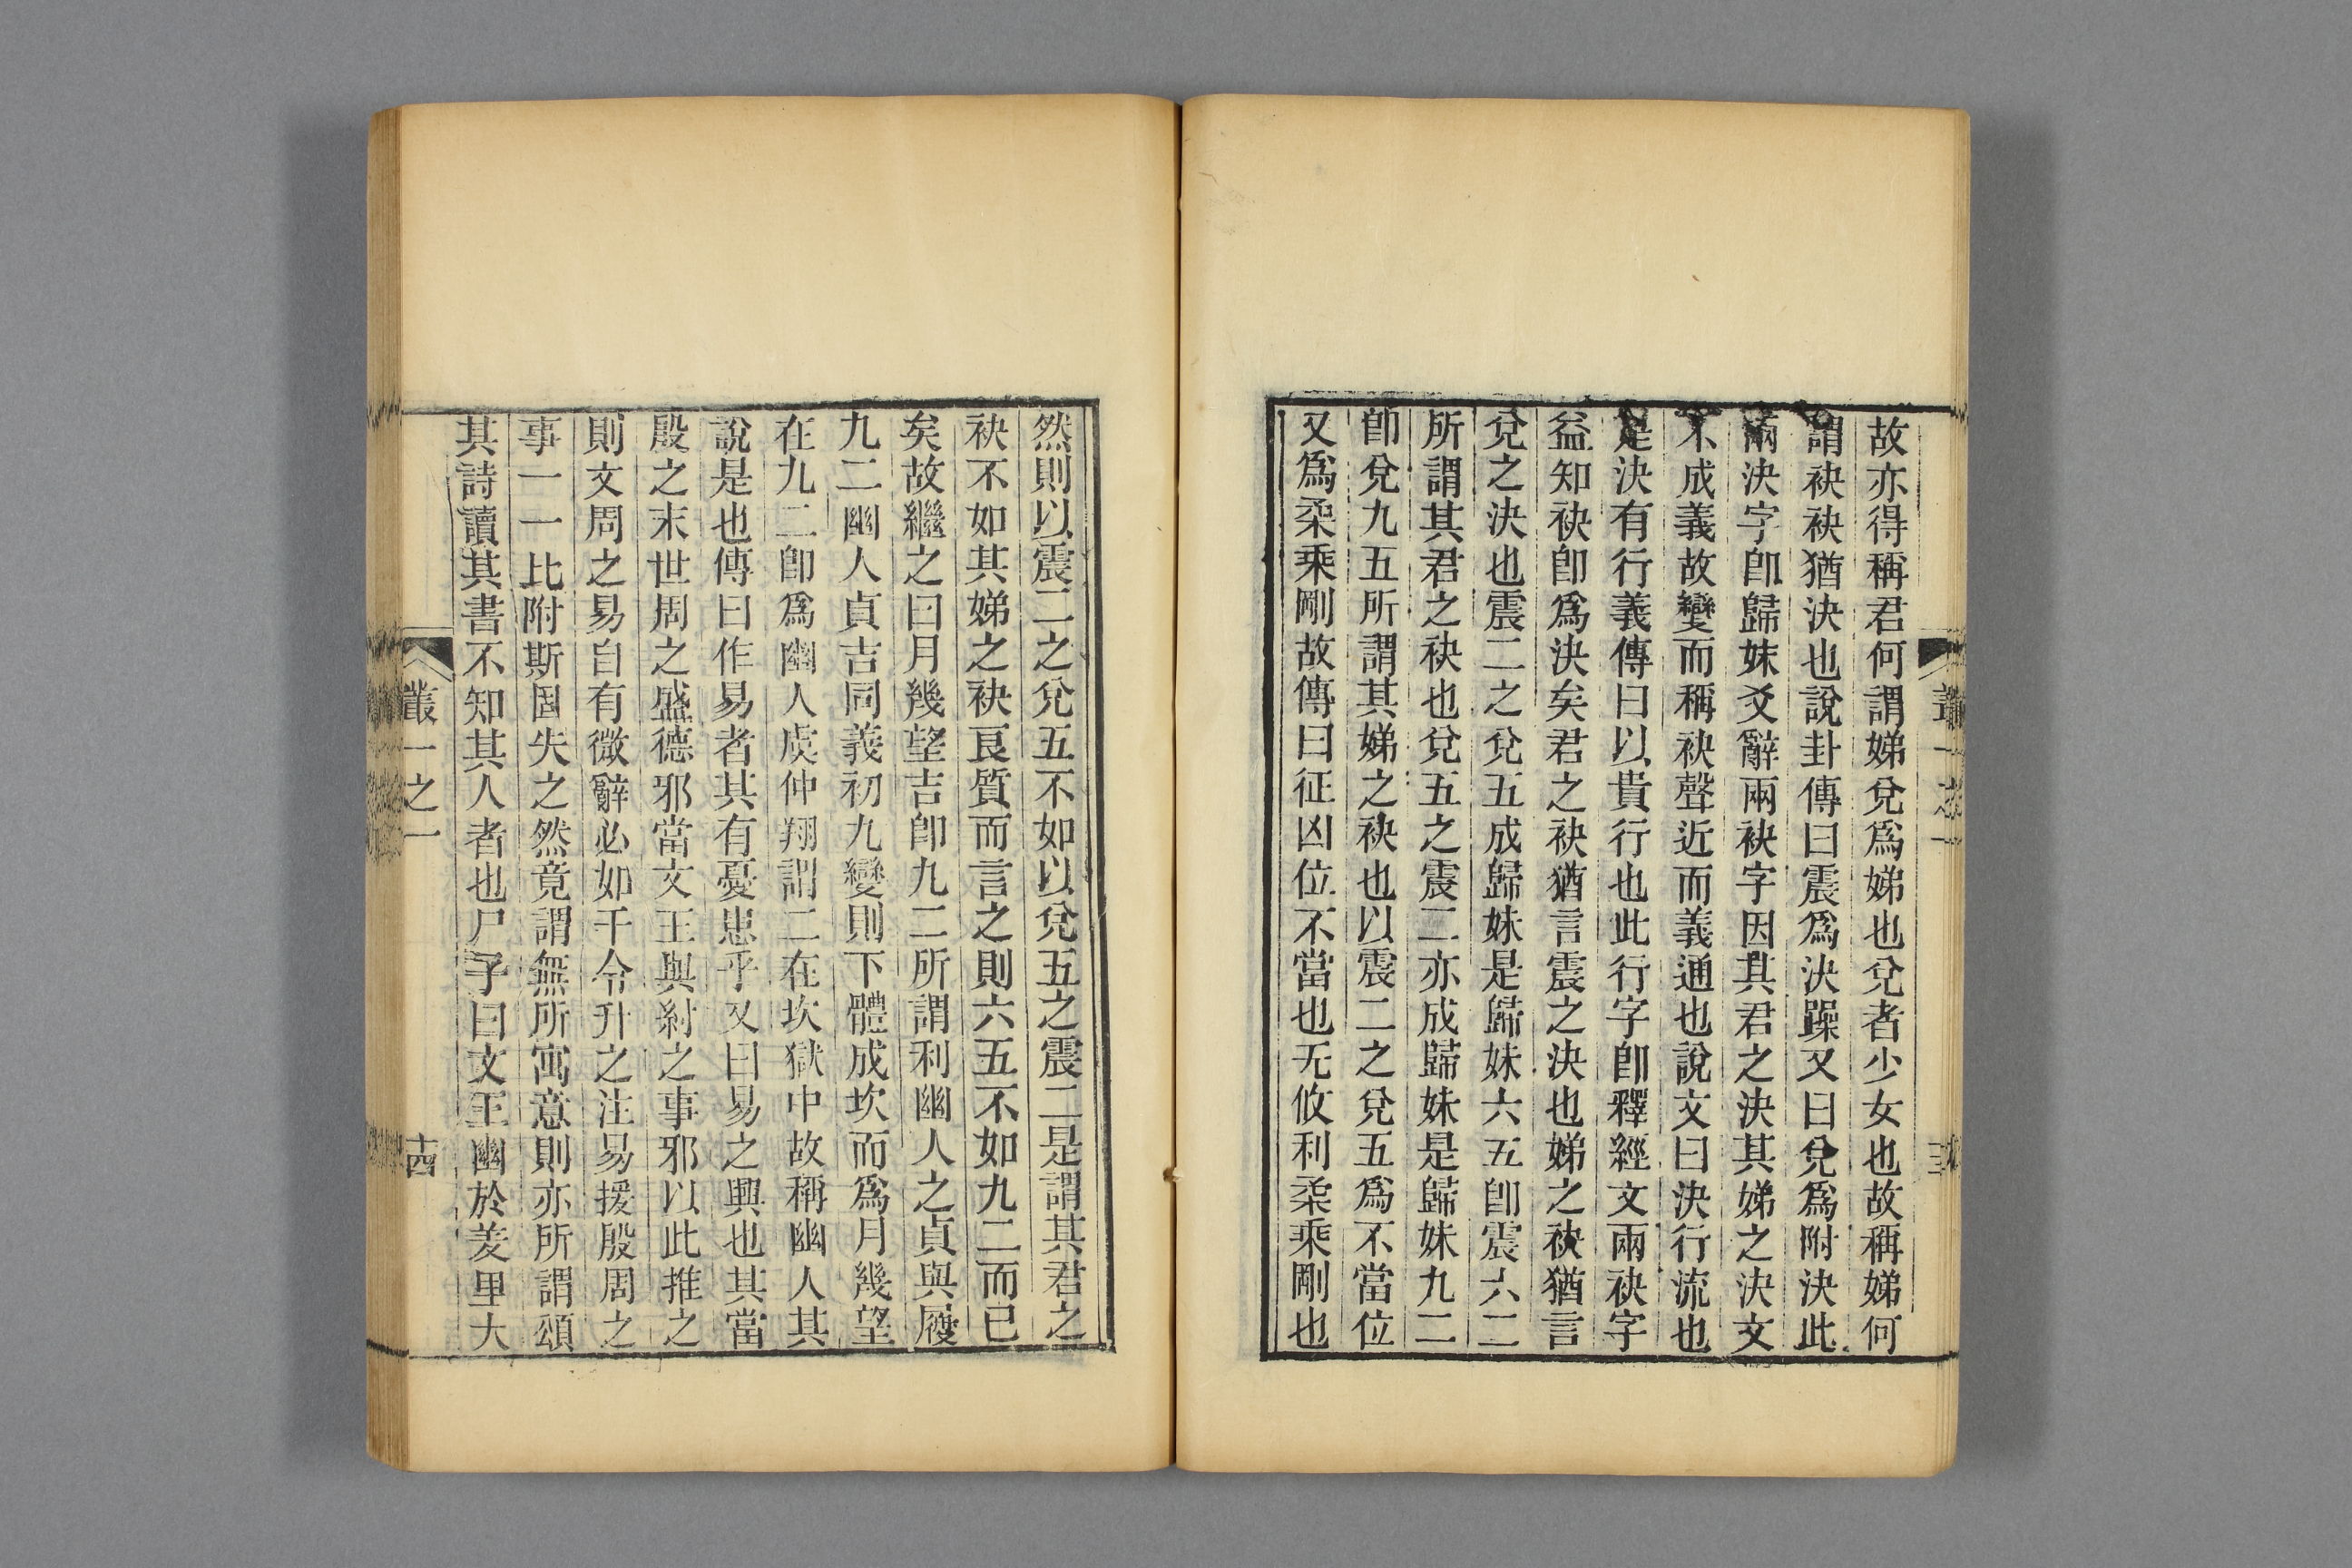 故亦得稱君何謂娣兌爲娣也兌者少女也故稱娣何
謂袂袂猶決也說卦傳曰震爲決躁又曰兌爲附決此
兩決字卽歸妹爻辭兩袂字因其君之決其娣之決文
不成義故變而稱袂聲近而義通也說文曰決行流也
是決有行義傳曰以貴行也此行字卽釋經文兩袂字
益知袂卽爲決矣君之袂猶言震之決也娣之袂猶言
兌之決也震二之兌五成歸妹是歸妹六五卽震六二
所謂其君之袂也兌五之震二亦成歸妹是歸妹九二
卽兌九五所謂其娣之袂也以震二之兌五爲不當位
又爲柔乘剛故傳曰征凶位不當也无攸利柔乘剛也
然則以震二之兌五不如以兌五之震二是謂其君之
袂不如其娣之袂良質而言之則六五不如九二而已
矣故繼之曰月幾望吉卽九二所謂利幽人之貞與履
九二幽人貞吉同義初九變則下體成坎而爲月幾望
在九二卽爲幽人虞仲翔謂二在坎獄中故稱幽人其
說是也傳曰作易者其有憂患乎又曰易之興也其當
殷之末世周之盛德邪當文王與紂之事邪以此推之
則文周之易自有微辭必如干令升之注易援殷周之
事一一比附斯固失之然竟謂無所寓意則亦所謂頌
其詩讀其書不知其人者也尸子曰文王幽於羑里大
叢一之一
十四